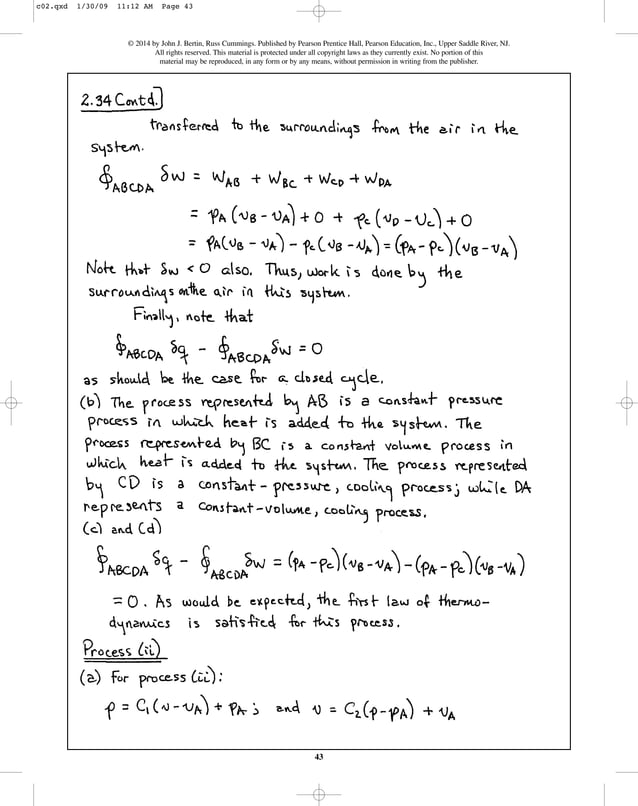 c02.qxd 1/30/09 11:12 AM Page 43
© 2014 by John J. Bertin, Russ Cummings. Published by Pearson Prentice Hall, Pearson Education, Inc., Upper Saddle River, NJ.
All rights reserved. This material is protected under all copyright laws as they currently exist. No portion of this
material may be reproduced, in any form or by any means, without permission in writing from the publisher.
2.34 Contd.]
transferred to the surroundings from the air in the
system.
∮ABCDA δw = wAB + wBC + wCD + wDA
= pA(vB - vA) + 0 + pc(vD - vc) + 0
= pA(vB - vA) - pc(vB - vA) = (pA - pc)(vB - vA)
Note that δw < 0 also. Thus, work is done by the
surroundings on the air in this system.
Finally, note that
∮ABCDA δq - ∮ABCDA δw = 0
as should be the case for a closed cycle.
(b) The process represented by AB is a constant pressure
process in which heat is added to the system. The
process represented by BC is a constant volume process in
which heat is added to the system. The process represented
by CD is a constant-pressure, cooling process; while DA
represents a constant-volume, cooling process.
(c) and (d)
∮ABCDA δq - ∮ABCDA δw = (pA - pc)(vB - vA) - (pA - pc)(vB - vA)
= 0. As would be expected, the first law of thermo-
dynamics is satisfied for this process.
Process (ii)
(a) For process (ii):
p = C1(v - vA) + pA ; and v = C2(p - pA) + vA
43